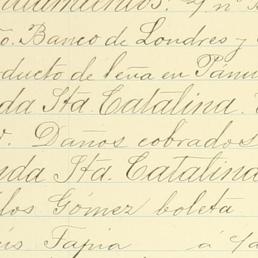 o. Banco de Londres y
ducto de leña en Panu
da Sta. Catalina.
Daños cobrados
nda Sta. Catalina
los Gómez boleta
is Tapia á